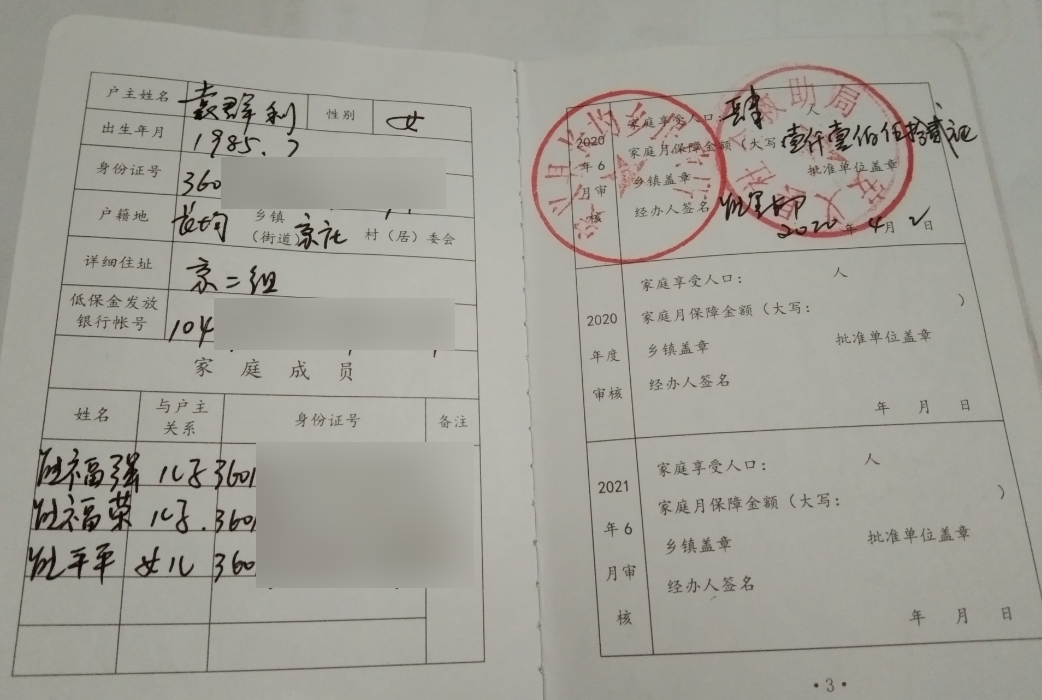 户主姓名 袁群利 性别 女
出生年月 1985.7
身份证号 360
户籍地 长均 乡镇
(街道 京社 村(居)委会
详细住址 京二组
低保金发放
银行帐号 104
家庭成员
姓名 与户主关系 身份证号 备注
福强 儿子 3601
福荣 儿子. 3601
平平 女儿 360
2020年6月审核
家庭享受人口: 肆 人
家庭月保障金额(大写 壹仟壹佰伍拾贰元
乡镇盖章 批准单位盖章
经办人签名
2020年4月2日
救助局
2020年度审核
家庭享受人口: 人
家庭月保障金额(大写: )
乡镇盖章 批准单位盖章
经办人签名
年 月 日
2021年6月审核
家庭享受人口: 人
家庭月保障金额(大写: )
乡镇盖章 批准单位盖章
经办人签名
年 月 日
·3·